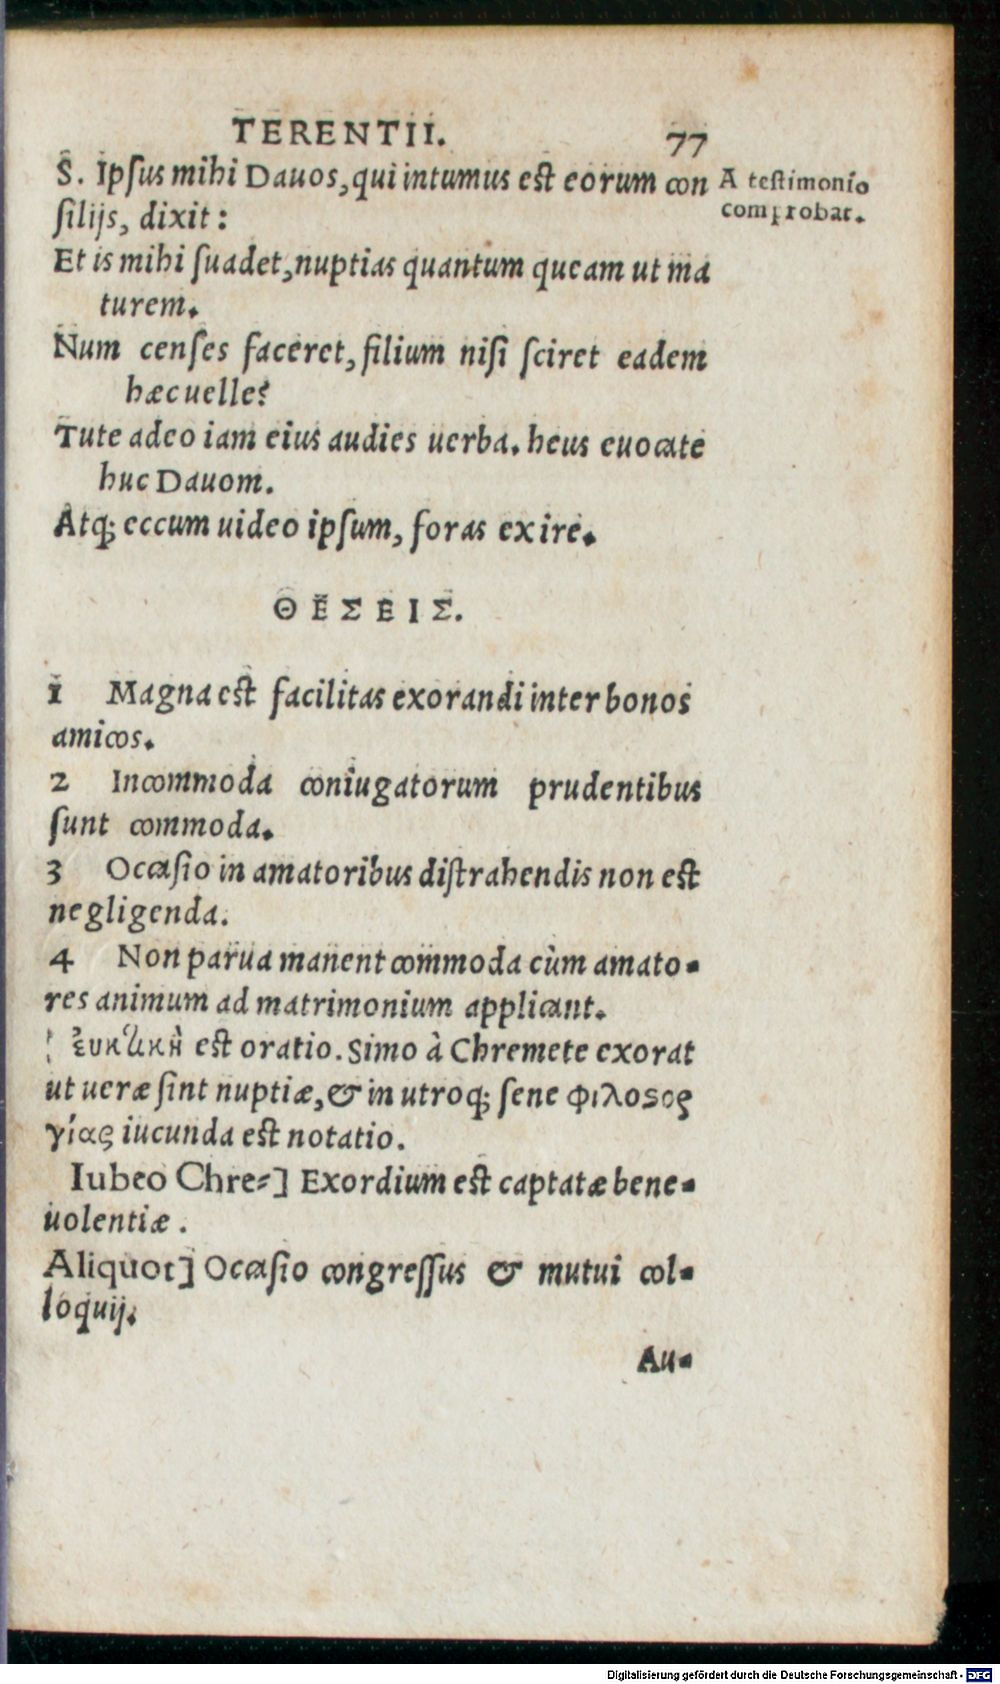 TERENTII. 77
S. Ipsus mihi Dauos, qui intumus est eorum con
silijs, dixit:
A testimonio
comprobat.
Et is mihi suadet, nuptias quantum queam ut ma
turem.
Num censes faceret, filium nisi sciret eadem
hæc uelle?
Tute adeo iam eius audies uerba. heus euocate
huc Dauom.
Atq; eccum uideo ipsum, foras exire.
ΘΕΣΕΙΣ.
1 Magna est facilitas exorandi inter bonos
amicos.
2 Incommoda coniugatorum prudentibus
sunt commoda.
3 Occasio in amatoribus distrahendis non est
negligenda.
4 Non parua manent commoda cùm amato-
res animum ad matrimonium applicant.
est oratio. Simo à Chremete exorat
ut ueræ sint nuptiæ, & in utroq; sene φιλοσος
γίας iucunda est notatio.
Iubeo Chre-] Exordium est captatæ bene-
uolentiæ.
Aliquot] Occasio congressus & mutui col-
loquij.
Au-
Digitalisierung gefördert durch die Deutsche Forschungsgemeinschaft - DFG